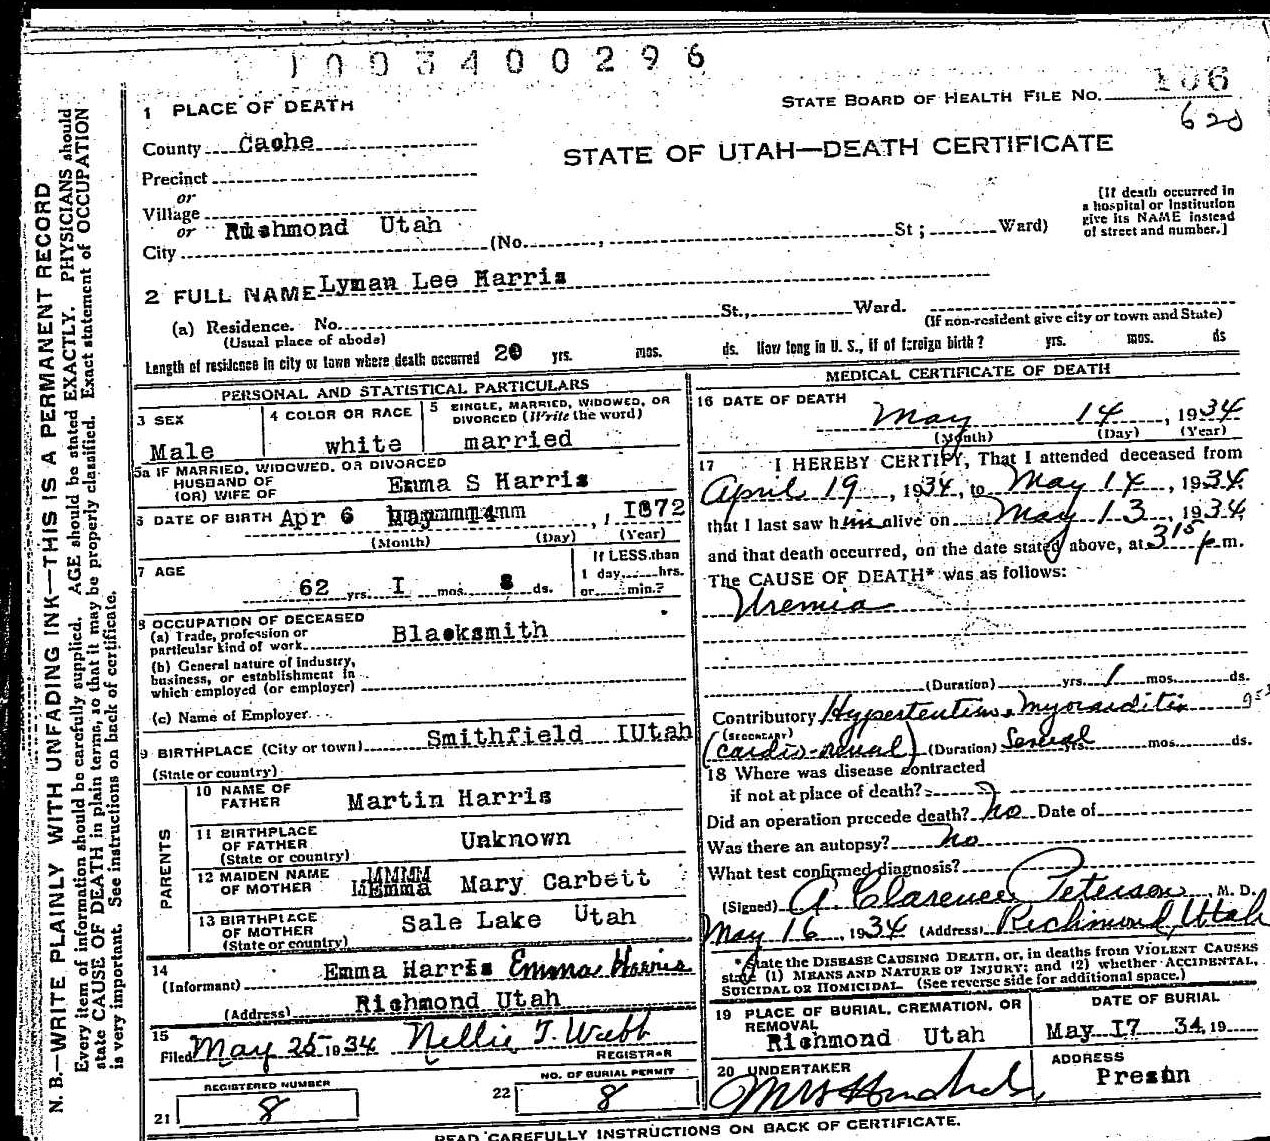 1003400296
STATE BOARD OF HEALTH FILE NO. 106
620
1 PLACE OF DEATH
County Cache
STATE OF UTAH—DEATH CERTIFICATE
Precinct
or
Village
or Richmond Utah
City (No. , St ; Ward)
[If death occurred in
a hospital or institution
give its NAME instead
of street and number.]
2 FULL NAME Lyman Lee Harris
(a) Residence. No. St., Ward.
(Usual place of abode) (If non-resident give city or town and State)
Length of residence in city or town where death occurred 20 yrs. mos. ds. How long in U. S., if of foreign birth? yrs. mos. ds
PERSONAL AND STATISTICAL PARTICULARS
3 SEX
Male
4 COLOR OR RACE
white
5 SINGLE, MARRIED, WIDOWED, OR
DIVORCED (Write the word)
married
5a IF MARRIED, WIDOWED, OR DIVORCED
HUSBAND OF
(OR) WIFE OF Emma S Harris
6 DATE OF BIRTH Apr 6 , 1872
(Month) (Day) (Year)
7 AGE
62 yrs. I mos. 8 ds.
If LESS than
1 day hrs.
or min.?
8 OCCUPATION OF DECEASED
(a) Trade, profession or
particular kind of work Blacksmith
(b) General nature of industry,
business, or establishment in
which employed (or employer)
(c) Name of Employer
9 BIRTHPLACE (City or town) Smithfield IUtah
(State or country)
PARENTS
10 NAME OF
FATHER Martin Harris
11 BIRTHPLACE
OF FATHER Unknown
(State or country)
12 MAIDEN NAME
OF MOTHER Mary Carbett
13 BIRTHPLACE
OF MOTHER Sale Lake Utah
(State or country)
14
(Informant) Emma Harris Emma Harris
(Address) Richmond Utah
15
Filed May 25 1934 Nellie T. Webb
REGISTRAR
REGISTERED NUMBER
21 8
NO. OF BURIAL PERMIT
22 8
MEDICAL CERTIFICATE OF DEATH
16 DATE OF DEATH
May 14, 1934
(Month) (Day) (Year)
17 I HEREBY CERTIFY, That I attended deceased from
April 19, 1934, to May 14, 1934
that I last saw him alive on May 13, 1934,
and that death occurred, on the date stated above, at 3 15 p.m.
The CAUSE OF DEATH* was as follows:
Uremia
(Duration) yrs. 1 mos. ds.
Contributory Hypertention, Myocarditis
(SECONDARY)
(cardio-renal) (Duration) Several mos. ds.
18 Where was disease contracted
if not at place of death?
Did an operation precede death? No Date of
Was there an autopsy? No
What test confirmed diagnosis?
(Signed) A. Clarence Peterson, M. D.
May 16, 1934 (Address) Richmond, Utah
* State the DISEASE CAUSING DEATH, or, in deaths from VIOLENT CAUSES
state (1) MEANS AND NATURE OF INJURY; and (2) whether ACCIDENTAL,
SUICIDAL OR HOMICIDAL. (See reverse side for additional space.)
19 PLACE OF BURIAL, CREMATION, OR
REMOVAL
Richmond Utah
DATE OF BURIAL
May I7 34, 19
20 UNDERTAKER
ADDRESS
Preston
READ CAREFULLY INSTRUCTIONS ON BACK OF CERTIFICATE.
N. B.—WRITE PLAINLY WITH UNFADING INK—THIS IS A PERMANENT RECORD
Every item of information should be carefully supplied. AGE should be stated EXACTLY. PHYSICIANS should
state CAUSE OF DEATH in plain terms, so that it may be properly classified. Exact statement of OCCUPATION
is very important. See instructions on back of certificate.